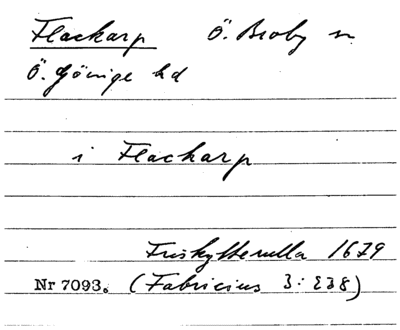 Flackarp Ö. Broby sn
Ö. Göinge hd
i Flackarp
Friskytterulla 1679
Nr 7093. (Fabricius 3:238)